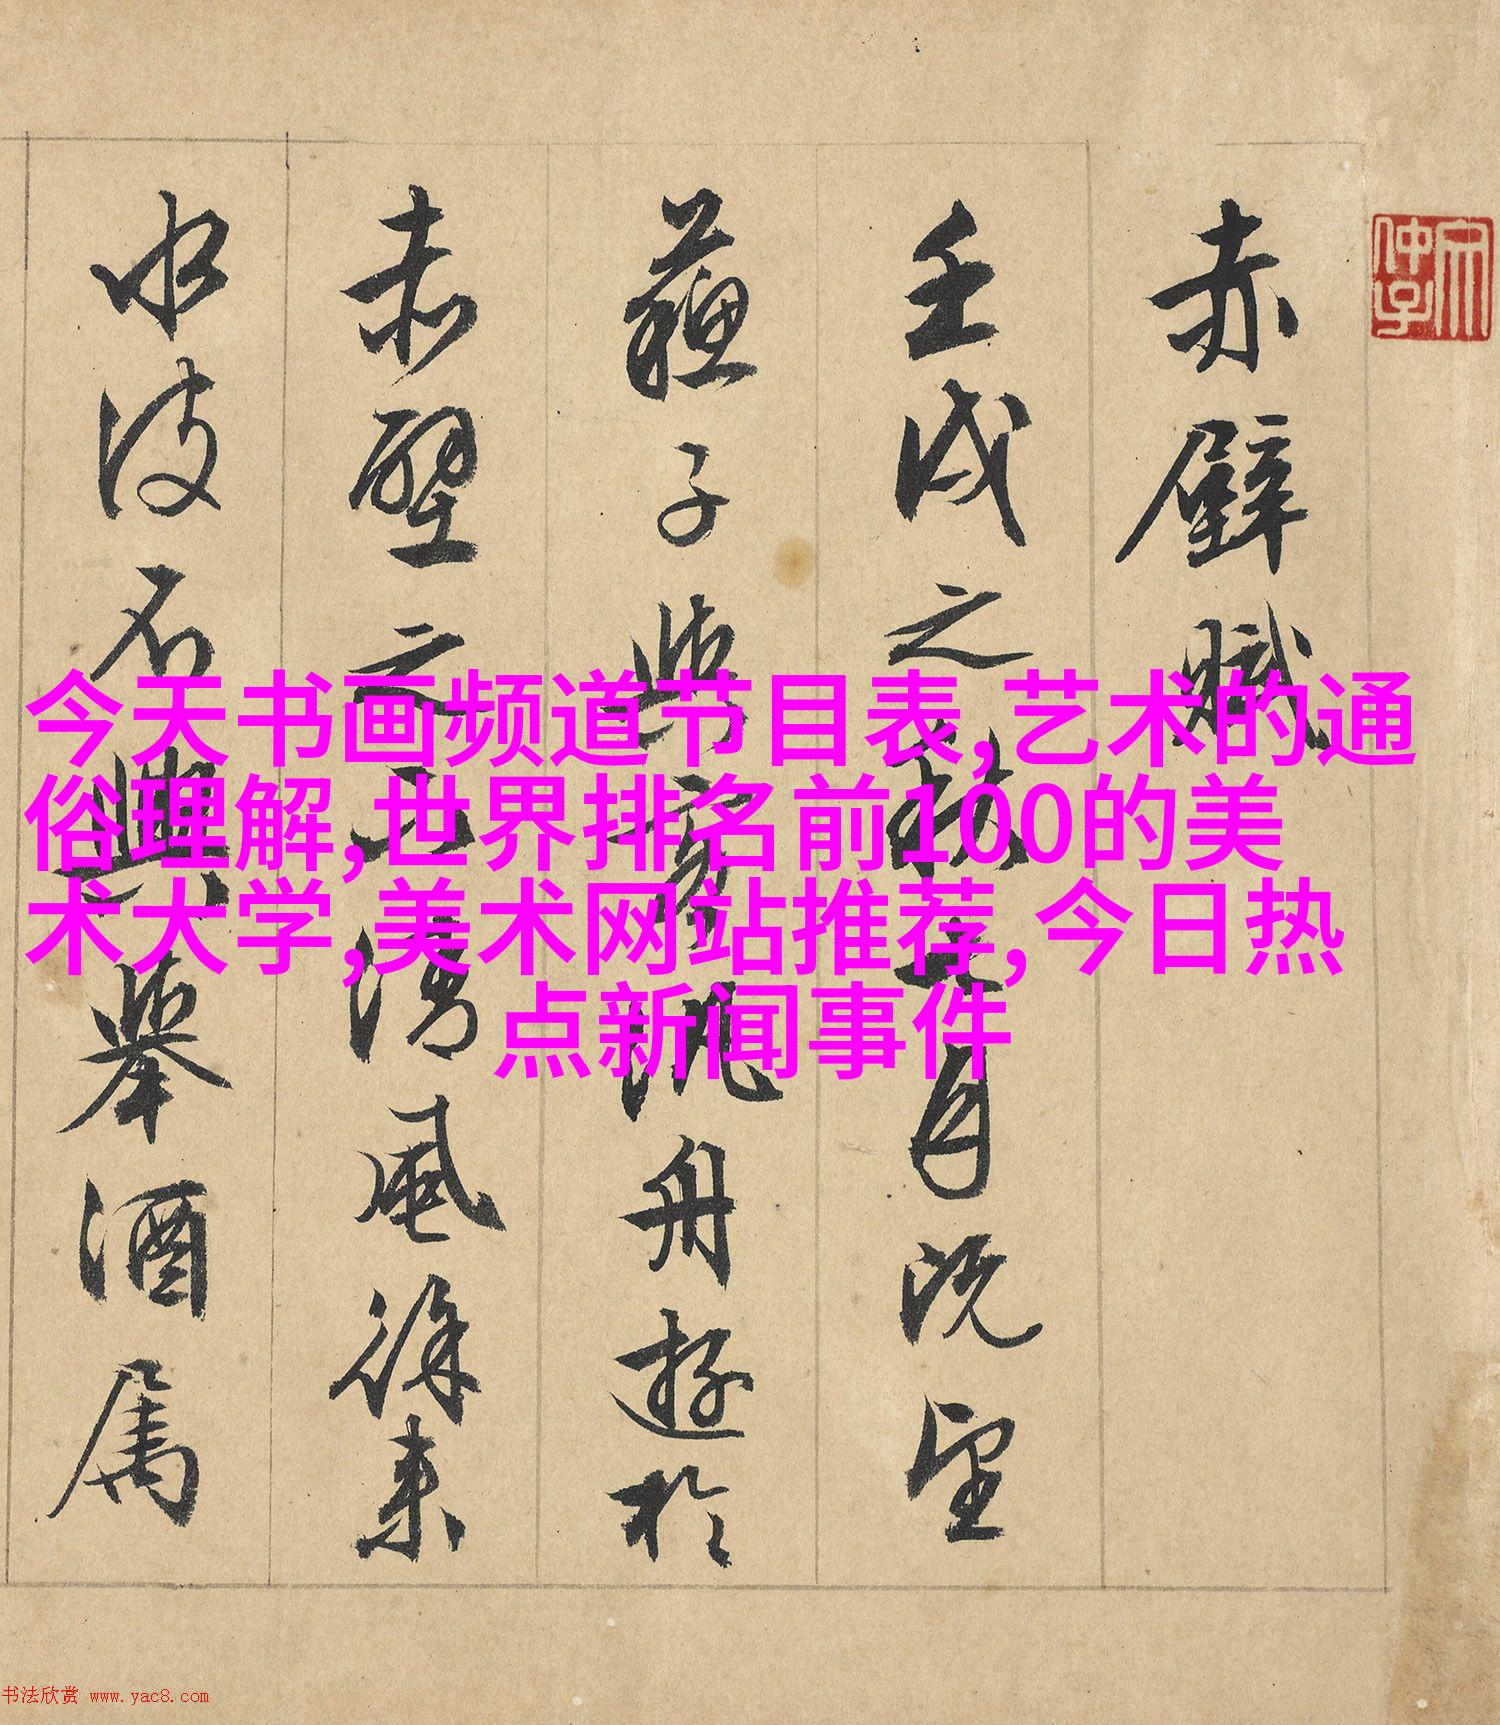 赤壁賦
壬戌之秋七月既望
蘇子與客汎舟遊於
赤壁之下清風徐來
水波不興舉酒屬
今天书画频道节目表,艺术的通
俗理解,世界排名前100的美
术大学,美术网站推荐,今日热
点新闻事件
书法欣赏 www.yac8.com